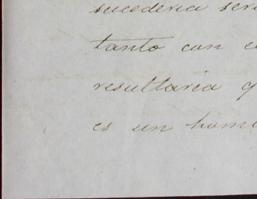 sucederia ser
tanto con e
resultaria q
es un hom